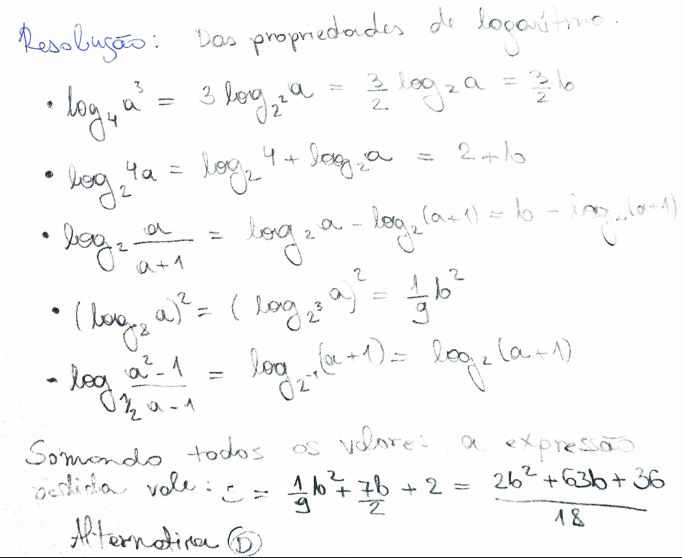 Resolução: Das propriedades de logarítmo.
• log₄ a³ = 3 log_{2²} a = 3/2 log₂ a = 3/2 b
• log₂ 4a = log₂ 4 + log₂ a = 2 + b
• log₂ a/(a+1) = log₂ a - log₂ (a+1) = b - log₂ (a+1)
• (log₈ a)² = (log_{2³} a)² = 1/9 b²
- log_{1/2} (a²-1)/(a-1) = log_{2⁻¹} (a+1) = log₂ (a+1)
Somando todos os valore: a expressão
pedida vale: = 1/9 b² + 7b/2 + 2 = (2b² + 63b + 36)/18
Alternativa D